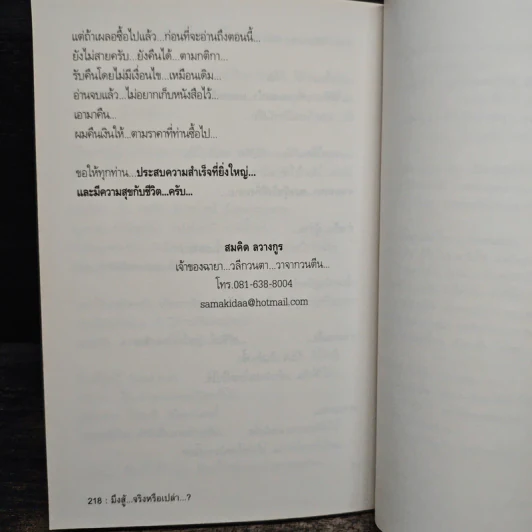 แต่ถ้าเผลอซื้อไปแล้ว...ก่อนที่จะอ่านถึงตอนนี้...
ยังไม่สายครับ...ยังคืนได้...ตามกติกา...
รับคืนโดยไม่มีเงื่อนไข...เหมือนเดิม...
อ่านจบแล้ว...ไม่อยากเก็บหนังสือไว้...
เอามาคืน...
ผมคืนเงินให้...ตามราคาที่ท่านซื้อไป...
ขอให้ทุกท่าน...ประสบความสำเร็จที่ยิ่งใหญ่...
และมีความสุขกับชีวิต...ครับ...
สมคิด ลวางกูร
เจ้าของฉายา...วลีกวนตา...วาจากวนตีน...
โทร.081-638-8004
samakidaa@hotmail.com
218 : มึงสู้...จริงหรือเปล่า...?